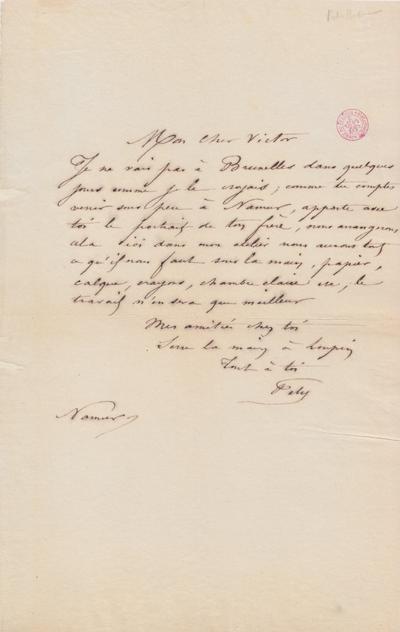 Mon cher Victor
Je ne vais pas à Bruxelles dans quelques
jours comme je le croyais; comme tu comptes
venir sous peu à Namur, apporte avec
toi le portrait de ton frère, nous arrangerons
cela ici dans mon atelier nous aurons tout
ce qu'il nous faut sous la main, papier,
calque, crayons, chambre claire etc, le
travail n'en sera que meilleur
Mes amitiés chez toi
Serre la main à
Tout à toi
Namur